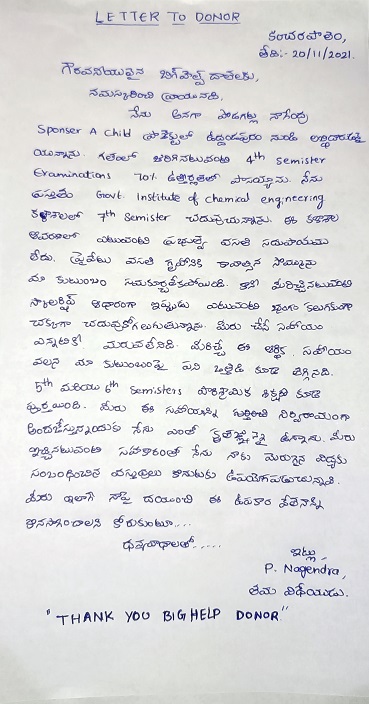 LETTER TO DONOR
కంచరపాలెం,
తేది:- 20/11/2021.
గౌరవనీయులైన బిగ్‌హెల్ప్ దాతలకు,
నమస్కరించి వ్రాయునది,
నేను అనగా పొడగట్ల నాగేంద్ర
Sponser A child ప్రాజెక్టులో ఉద్దండపురం నుండి లబ్ధిదారుడై
యున్నాను. గతంలో జరిగినటువంటి 4th Semister
Examinations 70% ఉత్తీర్ణతలో పాసయ్యాను. నేను
ప్రస్తుతం Govt. Institute of chemical engineering
కళాశాలలో 7th Semister చదువుచున్నాను. ఈ కళాశాల
ఆవరణలో ఎటువంటి ప్రభుత్వ వసతి సదుపాయము
లేదు. ప్రైవేటు వసతి గృహానికి కావాల్సిన సొమ్మును
మా కుటుంబం సమకూర్చలేకపోయింది. కానీ మీరిచ్చినటువంటి
స్కాలర్షిప్ ఆధారంగా ఇప్పుడు ఎటువంటి భంగం కలుగకుండా
చక్కగా చదువుకోగలుగుతున్నాను. మీరు చేసే సహాయం
ఎన్నటికీ మరువలేనిది. మీరిచ్చే ఈ ఆర్థిక సహాయం
వలన మా కుటుంబంపై పని ఒత్తిడి కూడా తగ్గినది.
5th మరియు 6th Semisters పారిశ్రామిక శిక్షణ కూడా
పూర్తయింది. మీరు ఈ సహాయాన్ని గుర్తించి నిర్విరామంగా
అందజేస్తున్నందుకు నేను ఎంతో కృతజ్ఞుడనై ఉన్నాను. మీరు
ఇచ్చినటువంటి సహకారంతో నేను నాకు మెరుగైన విద్యకు
సంబంధించిన వస్తువులు కొనుటకు ఉపయోగపడుచున్నవి.
మీరు ఇలాగే నాపై దయుంచి ఈ ఉపకార వేతనాన్ని
కొనసాగించాలని కోరుకుంటూ....
ధన్యవాదాలతో.....
ఇట్లు,
P. Nagendra,
తమ విధేయుడు.
"THANK YOU BIGHELP DONOR"